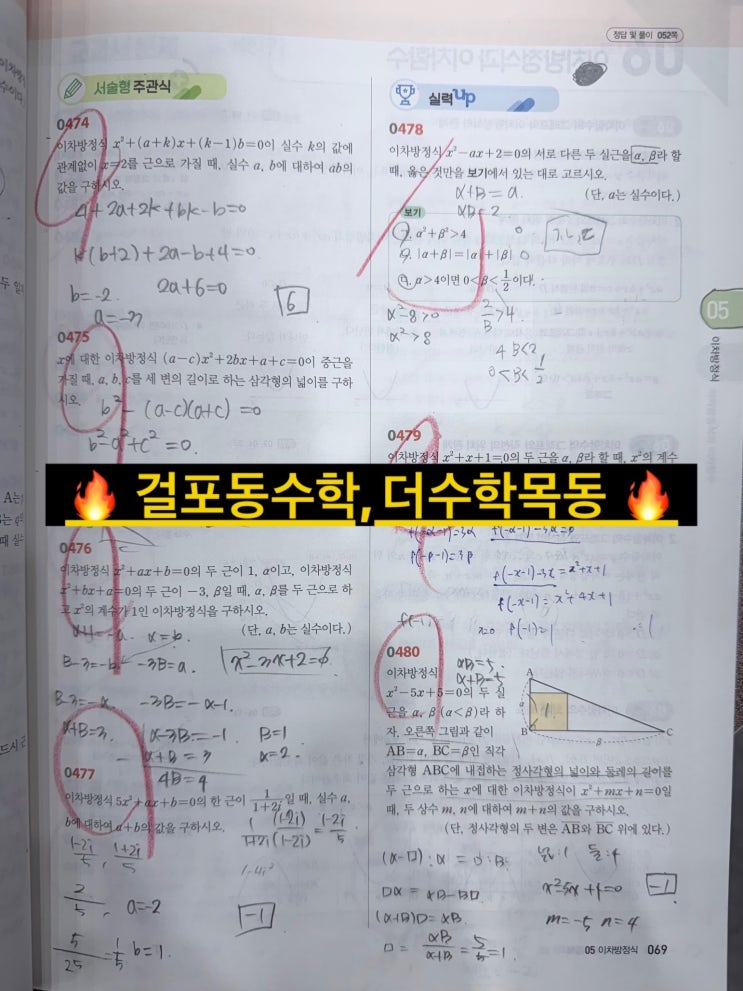 정답 및 풀이 052쪽
서술형 주관식
0474
이차방정식 x²+(a+k)x+(k-1)b=0이 실수 k의 값에
관계없이 x=2를 근으로 가질 때, 실수 a, b에 대하여 ab의
값을 구하시오.
4+2a+2k+bk-b=0
k(b+2)+2a-b+4=0.
b=-2. 2a+6=0
a=-3
6
0475
x에 대한 이차방정식 (a-c)x²+2bx+a+c=0이 중근을
가질 때, a, b, c를 세 변의 길이로 하는 삼각형의 넓이를 구하
시오.
b²-(a-c)(a+c)=0
b²-a²+c²=0.
🔥 걸포동수학, 더수학목동 🔥
0476
이차방정식 x²+ax+b=0의 두 근이 1, α이고, 이차방정식
x²+bx+a=0의 두 근이 -3, β일 때, α, β를 두 근으로 하
고 x²의 계수가 1인 이차방정식을 구하시오.
(단, a, b는 실수이다.)
α+1=-a. α=b.
β-3=-b. -3β=a.
x²-3x+2=0
β-3=-α. -3β=-α-1.
α+β=3. α-3β=-1. β=1
α+β=3 α=2.
4β=4
0477
이차방정식 5x²+ax+b=0의 한 근이 1/(1+2i)일 때, 실수 a,
b에 대하여 a+b의 값을 구하시오.
1/(1+2i) (1-2i)/(1-2i) = (1-2i)/5
(1-2i)/5, (1+2i)/5
1-4i²
2/5, a=-2
-1
5/25 = 1/5 b=1.
실력 up
0478
이차방정식 x²-ax+2=0의 서로 다른 두 실근을 α, β라 할
때, 옳은 것만을 보기에서 있는 대로 고르시오.
(단, a는 실수이다.)
α+β=a.
αβ=2
보기
ㄱ. α²+β²>4
ㄴ. |α+β|=|α|+|β|
ㄷ. α>4이면 0<β<1/2이다.
ㄱ, ㄴ, ㄷ
a²-8>0 2/β>4.
a²>8
4β<2
0<β<1/2
0479
이차방정식 x²+x+1=0의 두 근을 α, β라 할 때, x²의 계수
f(-α-1)=3α f(-α-1)-3α=0
f(-β-1)=3β
f(-x-1)-3x=x²+x+1
f(-x-1)=x²+4x+1
x=0 f(-1)=1
0480
이차방정식
x²-5x+5=0의 두 실
근을 α, β (α<β)라 하
자. 오른쪽 그림과 같이
AB=α, BC=β인 직각
삼각형 ABC에 내접하는 정사각형의 넓이와 둘레의 길이를
두 근으로 하는 x에 대한 이차방정식이 x²+mx+n=0일
때, 두 상수 m, n에 대하여 m+n의 값을 구하시오.
(단, 정사각형의 두 변은 AB와 BC 위에 있다.)
αβ=5.
α+β=5
A
α
1
B
β
C
(α-□):α=□:β. 넓:1 둘:4
□α=αβ-β□. x²-5x+4=0
-1
(α+β)□=αβ. m=-5 n=4
□=αβ/(α+β)=5/5=1.
05
이차방정식
05 이차방정식 069